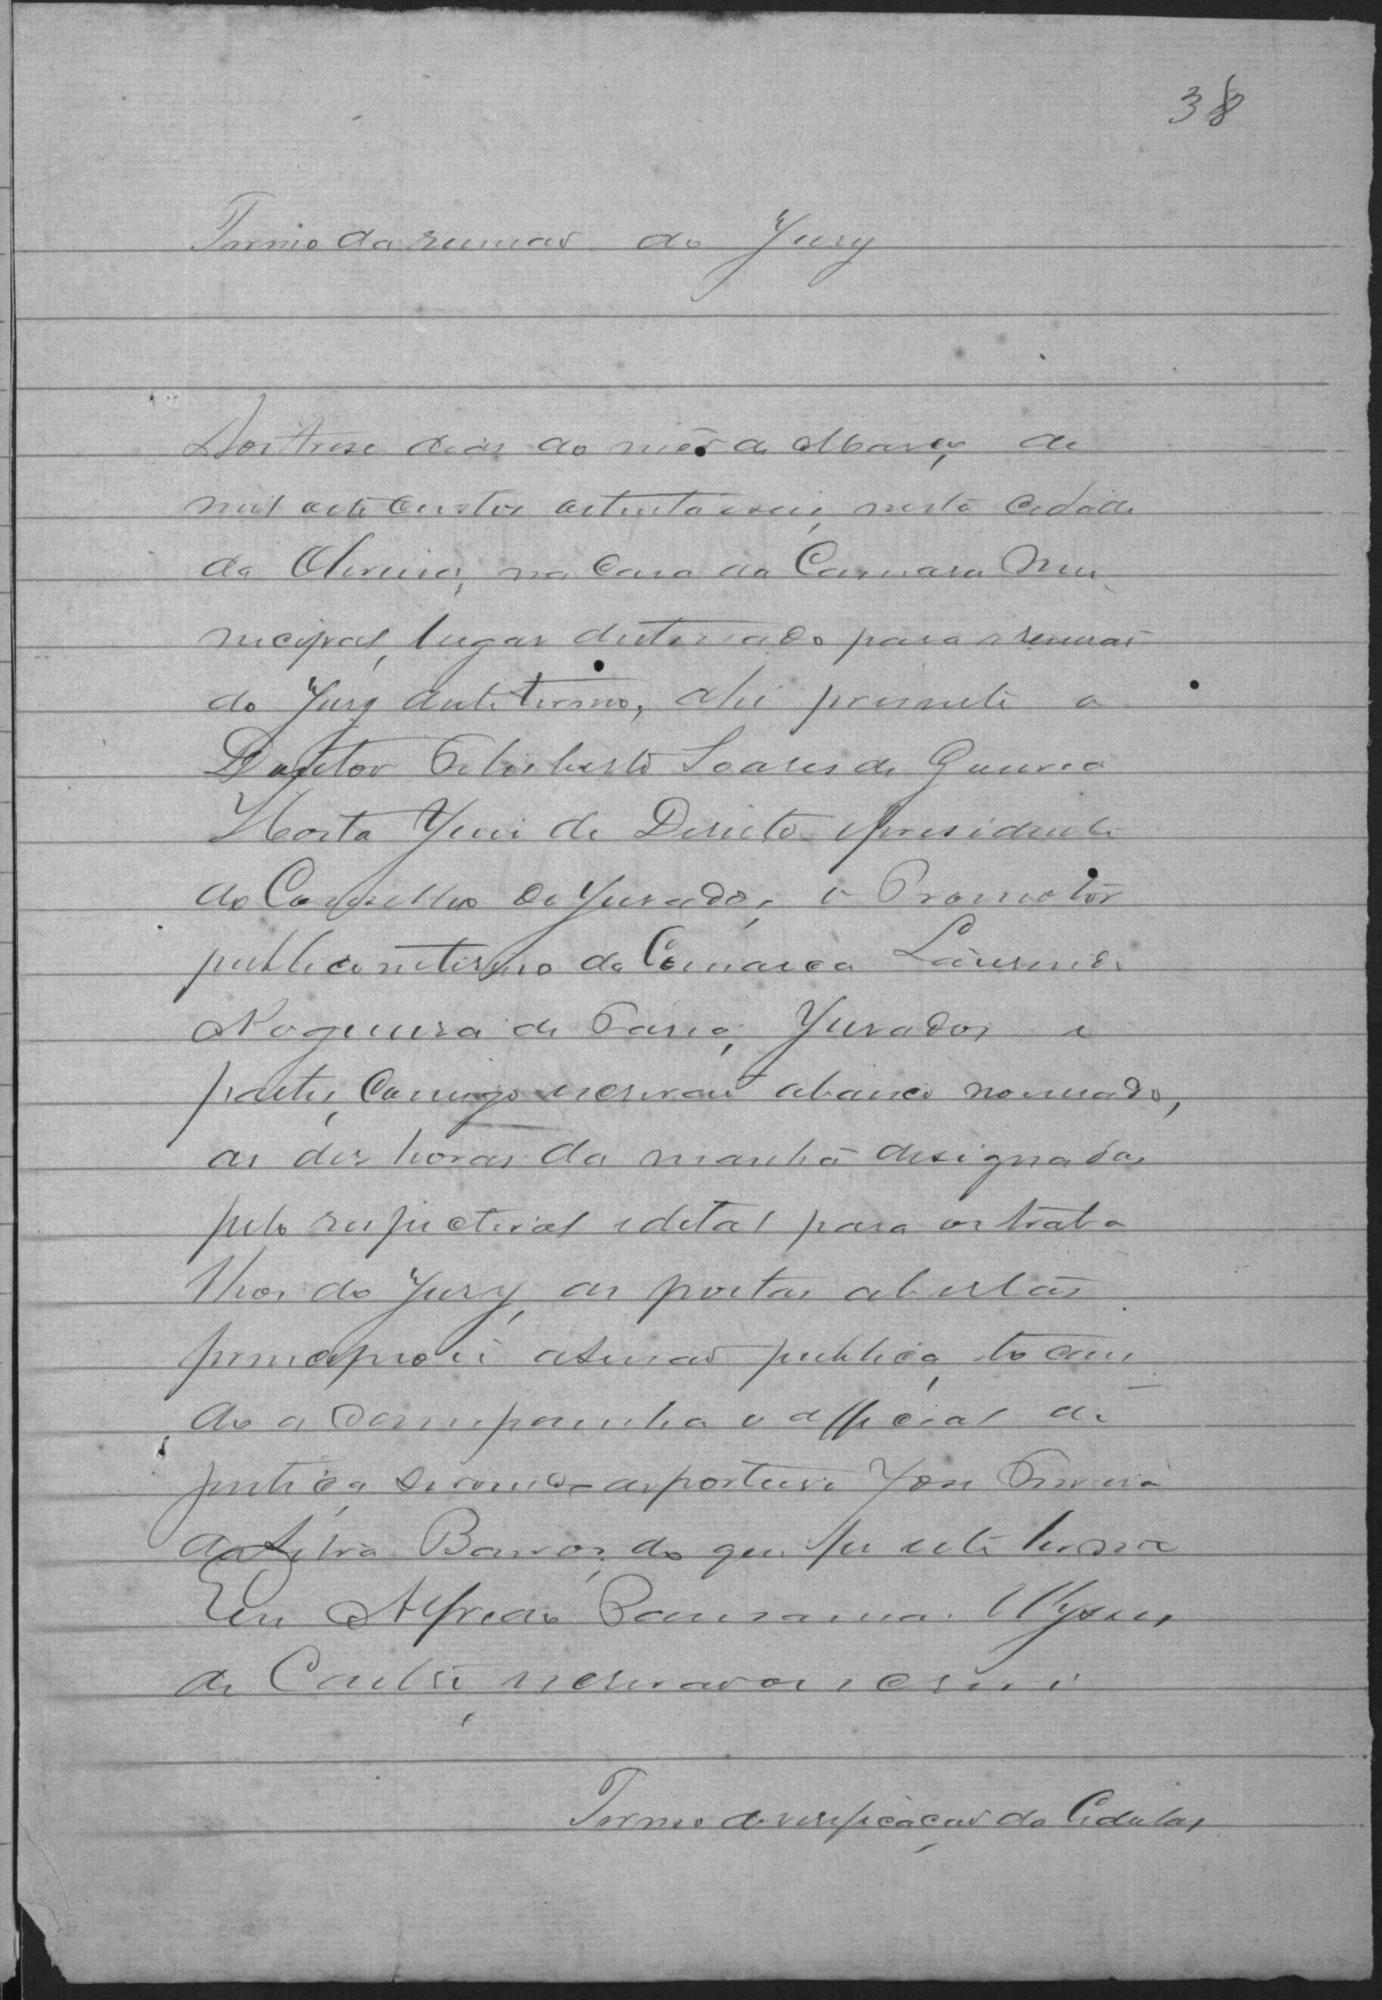 38
Termo da reuniaõ do Jury
Aos trese dias do mês de Março de
mil oito centos oitenta e seis, nesta cidade
de Oliveira, na casa da Camara Mu
nicipal, lugar destinado para a reuniaõ
do Jury deste termo, ahi presente o
Doutor Soares de Gouvea
Horta Juis de Direito e presidente
do Conselho de Jurados, o Promotor
publico interino da Comarca Laurindo
Nogueira de Faria, Jurados e
partes, comigo escrivaõ abaixo nomeado,
as des horas da manhã designadas
pelo respectivo edital para os traba
lhos do Jury, as portas abertas
principiou a sessaõ publica, tocan
do a Campainha o official de
justiça servindo de porteiro José Ferreira
da Silva Barros, do que fis este termo
Eu Alfredo Ulysses
de Castro, escrivaõ o escrevi
Termo de verificaçaõ das Cedulas